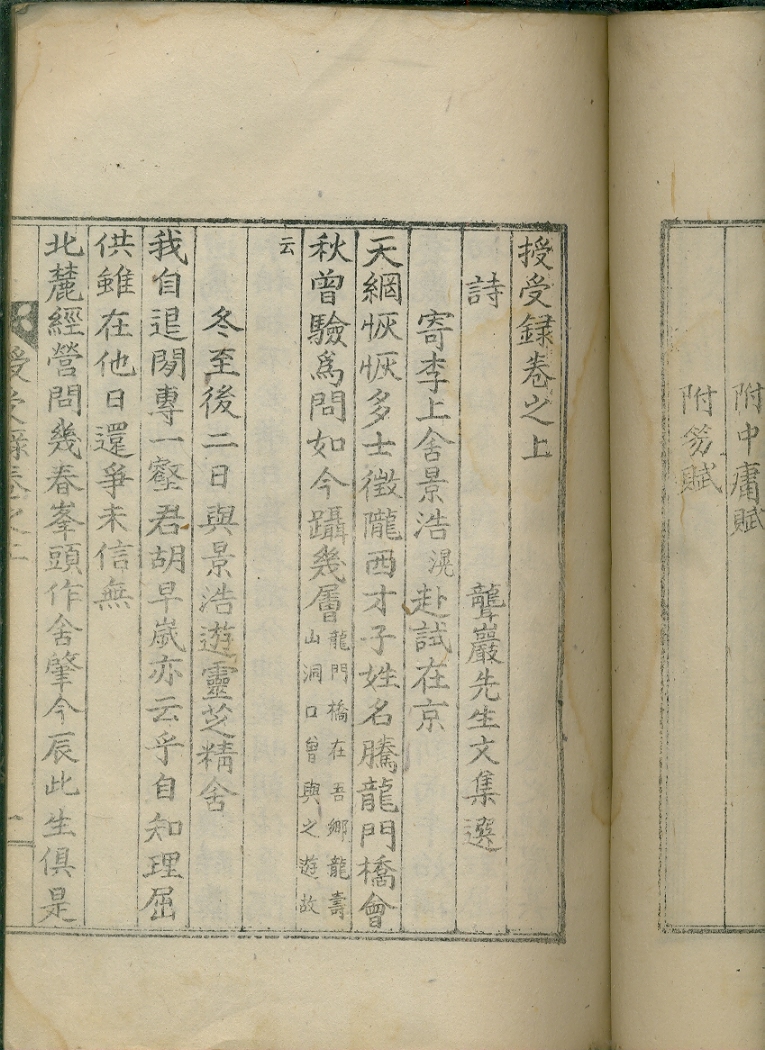 附中庸賦
附笏賦
授受録卷之上
詩 聾巖先生文集選
寄李上舍景浩滉赴試在京
天網恢恢多士徵隴西才子姓名騰龍門橋會
秋曾驗爲問如今躡幾層龍門橋在吾鄉龍壽
山洞口曾與之遊故
云
冬至後二日與景浩遊靈芝精舍
我自退閒專一壑君胡早歲亦云乎自知理屈
供雖在他日還爭未信無
北麓經營問幾春峯頭作舍肇今辰此生俱是
授受録卷之上
一